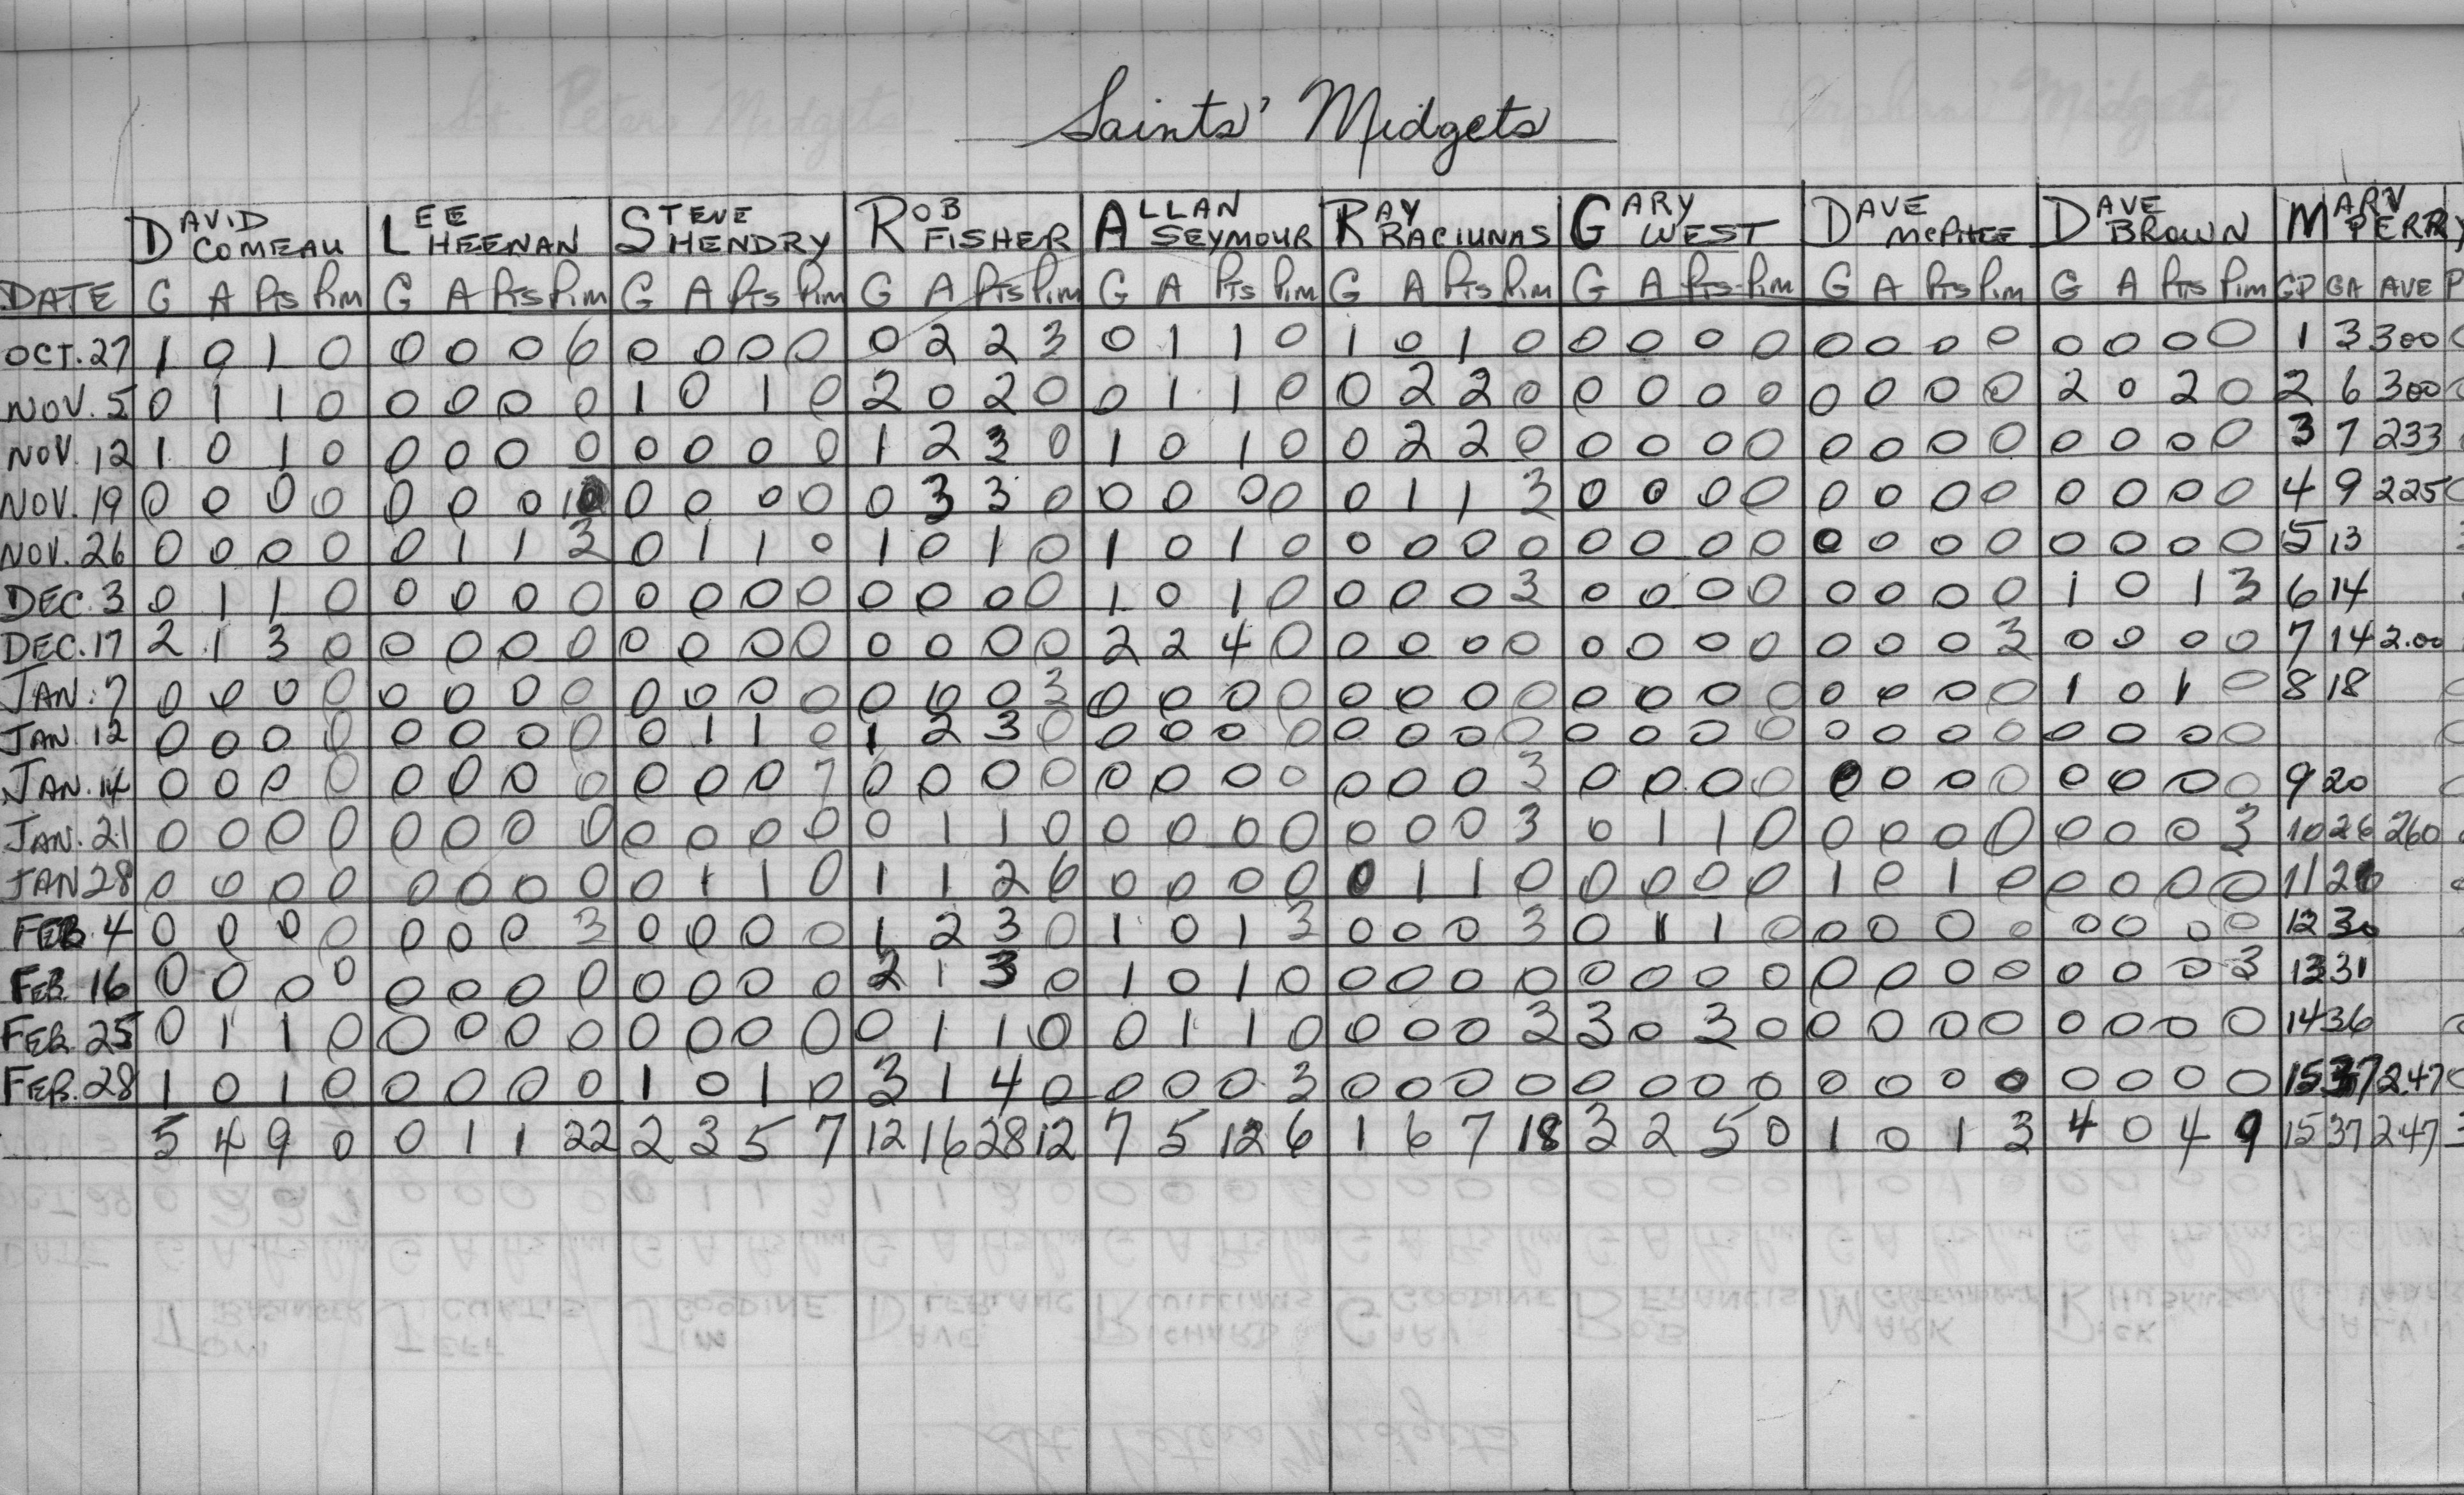 Saints' Midgets
DAVID COMEAU LEE HEENAN STEVE HENDRY ROB FISHER ALLAN SEYMOUR RAY RACIUNAS GARY WEST DAVE MCPHEE DAVE BROWN MARV PERRY
DATE G A Pts Pim G A Pts Pim G A Pts Pim G A Pts Pim G A Pts Pim G A Pts Pim G A Pts Pim G A Pts Pim G A Pts Pim GP GA AVE
OCT. 27 1 0 1 0 0 0 0 6 0 0 0 0 0 2 2 3 0 1 1 0 1 0 1 0 0 0 0 0 0 0 0 0 0 0 0 0 1 3 300
NOV. 5 0 1 1 0 0 0 0 0 1 0 1 0 2 0 2 0 0 1 1 0 0 2 2 0 0 0 0 0 0 0 0 0 2 0 2 0 2 6 300
NOV. 12 1 0 1 0 0 0 0 0 0 0 0 0 1 2 3 0 1 0 1 0 0 2 2 0 0 0 0 0 0 0 0 0 0 0 0 0 3 7 233
NOV. 19 0 0 0 0 0 0 0 10 0 0 0 0 0 3 3 0 0 0 0 0 0 1 1 3 0 0 0 0 0 0 0 0 0 0 0 0 4 9 225
NOV. 26 0 0 0 0 0 1 1 3 0 1 1 0 1 0 1 0 1 0 1 0 0 0 0 0 0 0 0 0 0 0 0 0 0 0 0 0 5 13
DEC. 3 0 1 1 0 0 0 0 0 0 0 0 0 0 0 0 0 1 0 1 0 0 0 0 3 0 0 0 0 0 0 0 0 1 0 1 3 6 14
DEC. 17 2 1 3 0 0 0 0 0 0 0 0 0 0 0 0 0 2 2 4 0 0 0 0 0 0 0 0 0 0 0 0 3 0 0 0 0 7 14 2.00
JAN. 7 0 0 0 0 0 0 0 0 0 0 0 0 0 0 0 3 0 0 0 0 0 0 0 0 0 0 0 0 0 0 0 0 1 0 1 0 8 18
JAN. 12 0 0 0 0 0 0 0 0 0 1 1 0 1 2 3 0 0 0 0 0 0 0 0 0 0 0 0 0 0 0 0 0 0 0 0 0
JAN. 14 0 0 0 0 0 0 0 0 0 0 0 7 0 0 0 0 0 0 0 0 0 0 0 3 0 0 0 0 0 0 0 0 0 0 0 0 9 20
JAN. 21 0 0 0 0 0 0 0 0 0 0 0 0 0 1 1 0 0 0 0 0 0 0 0 3 0 1 1 0 0 0 0 0 0 0 0 3 10 26 260
JAN 28 0 0 0 0 0 0 0 0 0 1 1 0 1 1 2 6 0 0 0 0 0 1 1 0 0 0 0 0 1 0 1 0 0 0 0 0 11
FEB. 4 0 0 0 0 0 0 0 3 0 0 0 0 1 2 3 0 1 0 1 3 0 0 0 3 0 1 1 0 0 0 0 0 0 0 0 0 12 30
FEB. 16 0 0 0 0 0 0 0 0 0 0 0 0 2 1 3 0 1 0 1 0 0 0 0 0 0 0 0 0 0 0 0 0 0 0 0 3 13 31
FEB. 25 0 1 1 0 0 0 0 0 0 0 0 0 0 1 1 0 0 1 1 0 0 0 0 3 3 0 3 0 0 0 0 0 0 0 0 0 14 36
FEB. 28 1 0 1 0 0 0 0 0 1 0 1 0 3 1 4 0 0 0 0 3 0 0 0 0 0 0 0 0 0 0 0 0 0 0 0 0 15 37 2.47
5 4 9 0 0 1 1 22 2 3 5 7 12 16 28 12 7 5 12 6 1 6 7 18 3 2 5 0 1 0 1 3 4 0 4 9 15 37 247